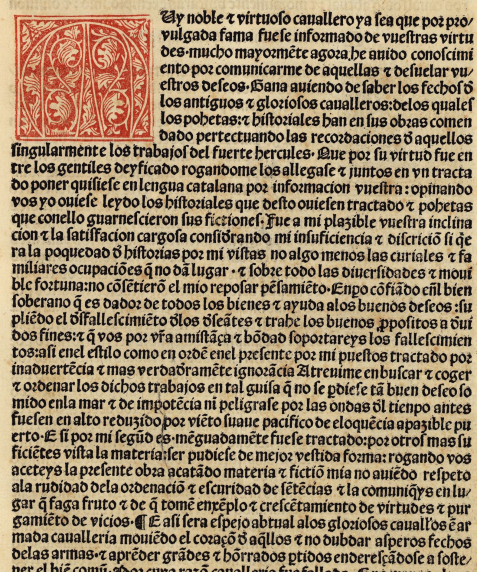 MUy noble ⁊ virtuoso cauallero ya sea que por pro/
vulgada fama fuese informado de vuestras virtu
des·mucho mayormēte agora, he auido conoscimi
ento por comunicarme de aquellas ⁊ desuelar vu/
estros deseos·Gana auiendo de saber los fechos d̄
los antiguos ⁊ gloriosos caualleros:delos quales
los pohetas:⁊ historiales han en sus obras comen
dado perfectuando las recordaciones d̄ aquellos
singularmente los trabajos del fuerte hercules·Que por su virtud fue en
tre los gentiles deyficado rogandome los allegase ⁊ juntos en vn tracta
do poner quisiese en lengua catalana por informacion vuestra:opinando
vos yo ouiese leydo los historiales que desto ouiesen tractado ⁊ pohetas
que conello guarnescieron sus ficciones·Fue a mi plazible vuestra inclina
cion ⁊ la satisfacion cargosa considrando mi insuficiencia ⁊ discriciō si q̄e
ra la poquedad d̄ historias por mi vistas no algo menos las curiales ⁊ fa
miliares ocupaciōes q̄ no dā lugar·⁊ sobre todo las diuersidades ⁊ moui
ble fortuna:no cōsētierō el mio reposar pēsamiēto·Enpo cōfiādo eñl bien
soberano q̄ es dador de todos los bienes ⁊ ayuda alos buenos deseos:su
pliēdo el d̄sfallescimiēto d̄los d̄seātes ⁊ trahe los buenos ꝓpositos a d̄ui
dos fines:⁊ q̄ vos por vr̄a amistāça ⁊ bōdad soportareys los fallescimien
tos:asi enel estilo como en ordē enel presente por mi puestos tractado por
inaduertēcia ⁊ mas verdad̄ramēte ignorācia Atreuime en buscar ⁊ coger
⁊ ordenar los dichos trabajos en tal guisa q̄ no se ꝑdiese tā buen deseo so
mido enla mar ⁊ de impotēcia ni peligrase por las ondas d̄l tiempo antes
fuesen en alto reduzido por viēto suaue pacifico de eloquēcia apazible pu
erto·E si por mi segūd es·mēguadamēte fuese tractado:por otros mas su
ficiētes vista la materia:ser pudiese de mejor vestida forma:rogando vos
aceteys la presente obra acatādo materia ⁊ fictiō mia no auiēdo respeto
ala rudidad dela ordenaciō ⁊ escuridad de sētēcias ⁊ la comuniq̄ys en lu/
gar q̄ faga fruto ⁊ de q̄ tomē enxēplo ⁊ crescētamiento de virtudes ⁊ pur
gamiēto de vicios·¶ E asi sera espejo abtual alos gloriosos cauallos ē ar
mada caualleria mouiēdo el coraçō d̄ aq̄llos ⁊ no dubdar asperos fechos
delas armas·⁊ aprēder grādes ⁊ hōrrados ꝑtidos enderesçādose a soste/